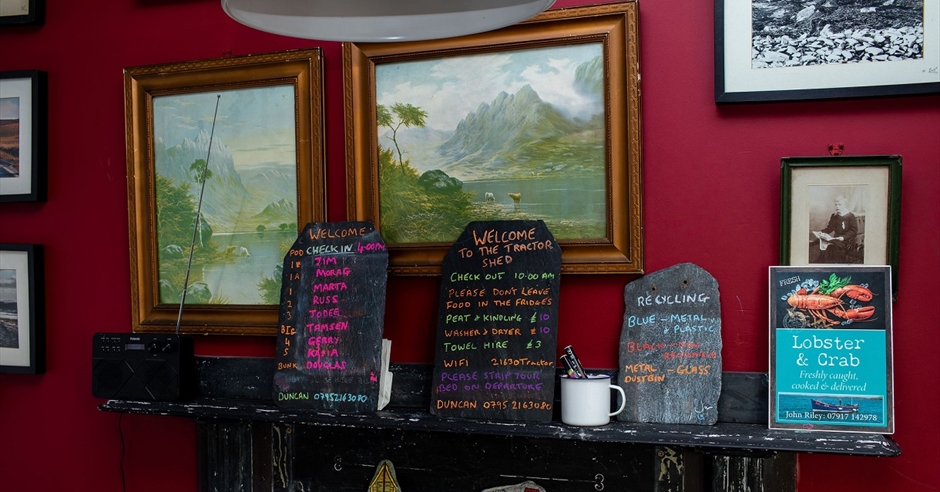 WELCOME
POD CHECK IN 4:00PM
1# JIM
1A MORAG
1 MARTA
2 RUSS
3 JODEE
BIG TAMSEN
4 GERRY
5
BUNK DOUGLAS
DUNCAN 07952163080
WELCOME
TO THE TRACTOR
SHED
CHECK OUT 10:00AM
PLEASE DON'T LEAVE
FOOD IN THE FRIDGES
PEAT & KINDLING £10
WASHER & DRYER £10
TOWEL HIRE £3
WIFI 21630Tractor
PLEASE STRIP YOUR
BED ON DEPARTURE
DUNCAN 0795 2163080
RECYCLING
BLUE - METAL
& PLASTIC
BLACK
METAL - GLASS
DUSTBIN
FRESH
Lobster
& Crab
Freshly caught,
cooked & delivered
John Riley: 07917 142978
1
3